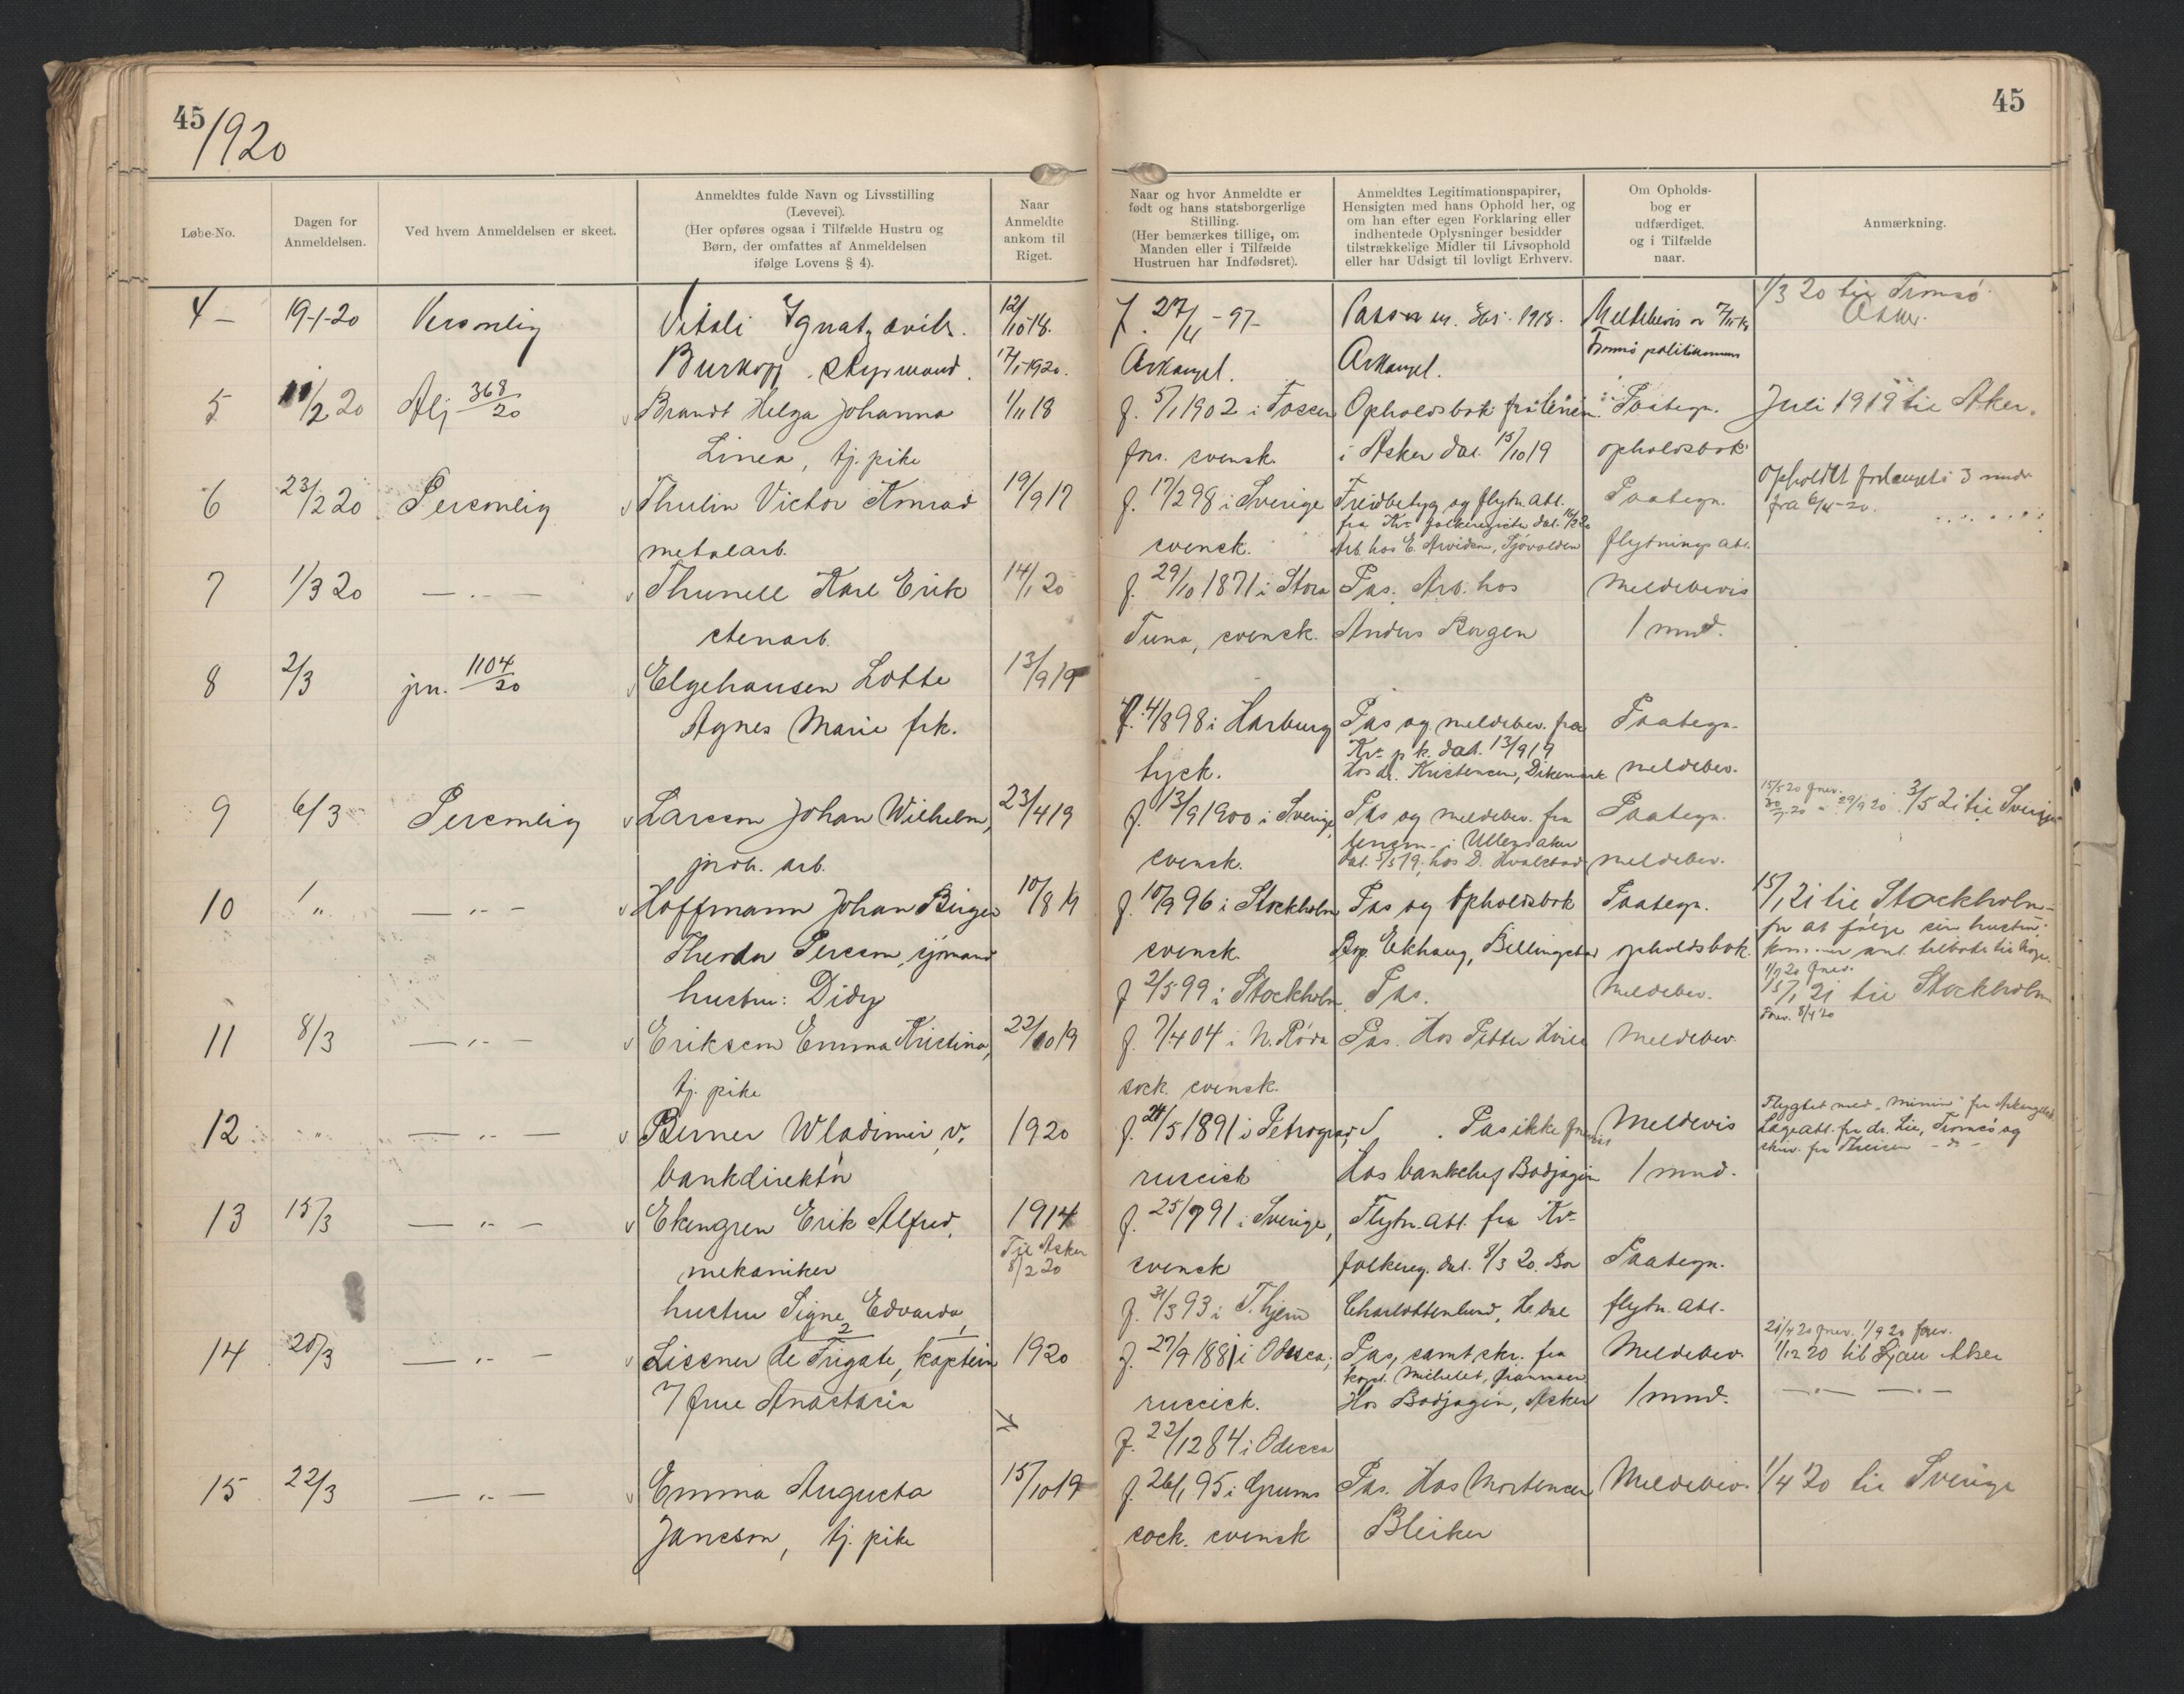 45
1920
45
Løbe-No.
Dagen for
Anmeldelsen.
Ved hvem Anmeldelsen er skeet.
Anmeldtes fulde Navn og Livsstilling
(Levevei).
(Her opføres ogsaa i Tilfælde Hustru og
Børn, der omfattes af Anmeldelsen
ifølge Lovens § 4).
Naar
Anmeldte
ankom til
Riget.
Naar og hvor Anmeldte er
født og hans statsborgerlige
Stilling.
(Her bemærkes tillige, om
Manden eller i Tilfælde
Hustruen har Indfødsret).
Anmeldtes Legitimationspapirer,
Hensigten med hans Ophold her, og
om han efter egen Forklaring eller
indhentede Oplysninger besidder
tilstrækkelige Midler til Livsophold
eller har Udsigt til lovligt Erhverv.
Om Opholds-
bog er
udfærdiget,
og i Tilfælde
naar.
Anmærkning.
4 – 19-1-20 Personlig Vitali 12/10-18. f. 27/11-97- 1918. 1/3 20 til Tromsø
Burkopp. styrmand. 17/1-1920. Arkangel. Arkangel. Tromsø politikammer
5 11/2 20 Afj 368/20 Brandt Helga Johanna 1/11 18 f. 5/1 1902 i Fossen Opholdsbok fra Paategn. Juli 1919 til Aker.
Linea, tj. pike fors. svensk. i Asker dat. 15/10 19 opholdsbok
6 23/2 20 Personlig Thulin Victor Konrad 19/9 17 f. 17/2 98 i Sverige Freidbetyg og flytn. att. Paategn. Opholdet forlænget i 3 mndr
fra Kr.a folkeregister dat. 16/2 20 fra 6/4-20.
metalarb. svensk. Arb. hos E. Arvidsen, flytnings att.
7 1/3 20 — „ — Thunell Karl Erik 14/1 20 f. 29/10 1871 i Stora Pas. Arb. hos Meldebevis
stenarb. Tuna, svensk. Anders Bergen 1 mnd.
8 2/3 jrn. 1104/20 Elgehausen Lotte 13/9 19
Agnes Marie frk. f. 4/8 98 i Harburg Pas og meldebev. fra Paategn.
Kr.a p. k. dat. 13/9 19
tysk. hos dr. Kristensen, Dikemark meldebev.
9 6/3 Personlig Larsson Johan Wilhelm, 23/4 19 f. 13/9 1900 i Sverige, Pas og meldebev. fra Paategn. 3/5 21 til Sverige
lensm. i Ullensaker
jordb. arb. svensk. dat. 5/5 19, hos D. Hvalstad meldebev.
10 „ — „ — Hoffmann Johan Birger 10/8 19 f. 10/9 96 i Stockholm Pas og Opholdsbok Paategn. 15/1 21 til Stockholm
for at følge sin hustru.
Theodor Persson, sjømand svensk. Bop. Ekhaug, Billingstad opholdsbok.
hustru: Didy f 2/5 99 i Stockholm Pas. Meldebev. 15/1 21 til Stockholm
11 8/3 — „ — Eriksson Emma Kristina, 22/10 19 f. 7/4 04 i N. Råda Pas. Hos Petter Meldebev. Forev. 8/4 20
tj. pike sock. svensk.
12 „ — „ — Berner Wladimir, v. 1920 f. 24/5 1891 i Petrograd, Pas ikke Meldevis Flygtet med „Minin“ fra Arkangelsk.
Lægeatt. fra dr. Lie, Tromsø og
bankdirektør russisk Hos bankchef Bodjagin 1 mnd. skriv. fra
13 15/3 — „ — Ekengren Erik Alfred, 1914 f. 25/7 91 i Sverige, Flytn. att. fra Kr.a
Til Asker
mekaniker 8/2 20 svensk folkereg. dat. 8/3 20. Bor Paategn.
hustru Signe Edvarda f. 31/3 93 i T.hjem Charlottenlund, flytn. att.
14 20/3 — „ — Lissner de Frigate, kaptein 1920 f. 27/9 1881 i Odessa, Pas, samt skr. fra Meldebev. 20/4 20 forev. 1/9 20 forev.
kapt. Michelet, 1/12 20 til Ljan Aker
7 frue Anastasia russisk. Hos Bodjagin, Asker 1 mnd. — „ — — „ —
f. 22/12 84 i Odessa
15 22/3 — „ — Emma Augusta 15/10 19 f. 26/1 95 i Grums Pas. Hos Mortensen Meldebev. 1/4 20 til Sverige
Jansson, tj. pike sock. svensk Bleiker